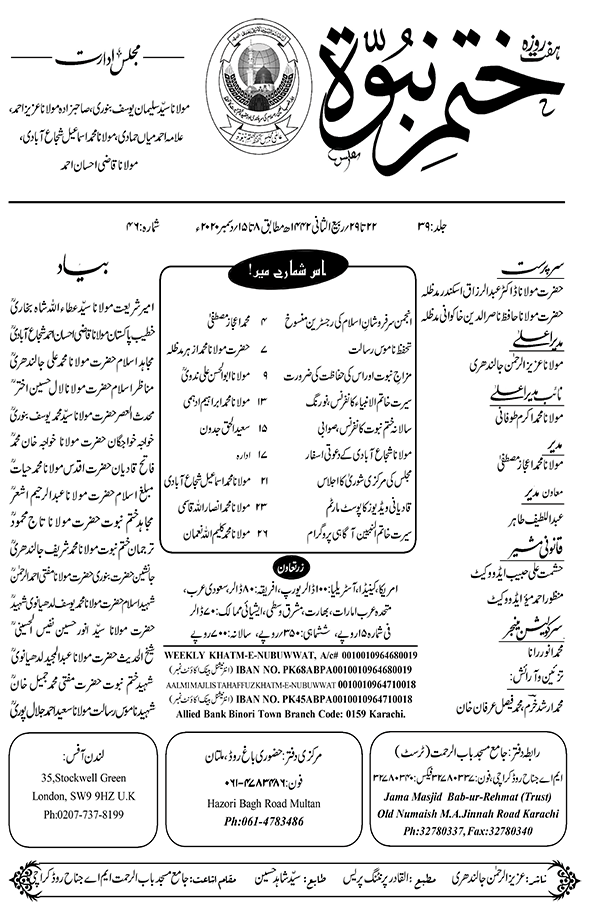 ہفت روزہ
ختم نبوّۃ
مجلس
مجلس ادارت
مولانا سید سلیمان یوسف بنوری، صاحبزادہ مولانا عزیز احمد،
علامہ احمد میاں حمادی، مولانا محمد اسماعیل شجاع آبادی،
مولانا قاضی احسان احمد
جلد: ۳۹
۲۲ تا ۲۹/ربیع الثانی ۱۴۴۲ھ مطابق ۸ تا ۱۵/دسمبر ۲۰۲۰ء
شمارہ: ۴۶
سرپرست
حضرت مولانا ڈاکٹر عبدالرزاق اسکندر مدظلہ
حضرت مولانا حافظ ناصر الدین خاکوانی مدظلہ
مدیر اعلیٰ
مولانا عزیز الرحمٰن جالندھری
نائب مدیر اعلیٰ
مولانا محمد اکرم طوفانی
مدیر
مولانا محمد اعجاز مصطفیٰ
معاون مدیر
عبداللطیف طاہر
قانونی مشیر
حشمت علی حبیب ایڈووکیٹ
منظور احمد میؤ ایڈووکیٹ
سرکولیشن منیجر
محمد انور رانا
تزئین و آرائش:
محمد ارشد خرم، محمد فیصل عرفان خان
اس شمارے میں!
انجمن سرفروشان اسلام کی رجسٹریشن منسوخ ۴ محمد اعجاز مصطفیٰ
تحفظ ناموس رسالت ۷ حضرت مولانا محمد ازہر مدظلہ
مزاج نبوت اور اس کی حفاظت کی ضرورت ۹ مولانا ابوالحسن علی ندویؒ
سیرت خاتم الانبیاء کانفرنس، نورنگ ۱۳ مولانا محمد ابراہیم ادہمی
سالانہ ختم نبوت کانفرنس، صوابی ۱۵ سعید الحق جدون
مولانا شجاع آبادی کے دعوتی اسفار ۱۷ ادارہ
مجلس کی مرکزی شوریٰ کا اجلاس ۲۱ مولانا محمد اسماعیل شجاع آبادی
قادیانی ویڈیوز کا پوسٹ مارٹم ۲۳ مولانا محمد انصار اللہ قاسمی
سیرت خاتم النبیین آگاہی پروگرام ۲۶ مولانا محمد کلیم اللہ نعمان
زرتعاون
امریکا، کینیڈا، آسٹریلیا: ۱۰۰ ڈالر یورپ، افریقہ: ۸۰ ڈالر، سعودی عرب،
متحدہ عرب امارات، بھارت، مشرق وسطیٰ، ایشیائی ممالک: ۷۰ ڈالر
فی شمارہ ۱۵ روپے، ششماہی: ۳۵۰ روپے، سالانہ: ۷۰۰ روپے
WEEKLY KHATM-E-NUBUWWAT, A/c# 0010010964680019
IBAN NO. PK68ABPA0010010964680019 (انٹرنیشنل بینک اکاؤنٹ نمبر)
AALMI MAJLIS TAHAFFUZ KHATM-E-NUBUWWAT 0010010964710018
IBAN NO. PK45ABPA0010010964710018 (انٹرنیشنل بینک اکاؤنٹ نمبر)
Allied Bank Binori Town Branch Code: 0159 Karachi.
بیاد
امیر شریعت مولانا سید عطاء اللہ شاہ بخاریؒ
خطیب پاکستان مولانا قاضی احسان احمد شجاع آبادیؒ
مجاہد اسلام حضرت مولانا محمد علی جالندھریؒ
مناظر اسلام حضرت مولانا لال حسین اخترؒ
محدث العصر حضرت مولانا سید محمد یوسف بنوریؒ
خواجہ خواجگان حضرت مولانا خواجہ خان محمدؒ
فاتح قادیان حضرت اقدس مولانا محمد حیاتؒ
مبلغ اسلام حضرت مولانا عبدالرحیم اشعرؒ
مجاہد ختم نبوت حضرت مولانا تاج محمودؒ
ترجمان ختم نبوت مولانا محمد شریف جالندھریؒ
جانشین حضرت بنوری حضرت مولانا مفتی احمد الرحمٰنؒ
شہید اسلام حضرت مولانا محمد یوسف لدھیانوی شہیدؒ
حضرت مولانا سید انور حسین نفیس الحسینیؒ
شیخ الحدیث حضرت مولانا عبدالمجید لدھیانویؒ
شہید ختم نبوت حضرت مفتی محمد جمیل خانؒ
شہید ناموس رسالت مولانا سعید احمد جلال پوریؒ
رابطہ دفتر: جامع مسجد باب الرحمت (ٹرسٹ)
ایم اے جناح روڈ کراچی، فون: ۳۲۷۸۰۳۳۷ فیکس: ۳۲۷۸۰۳۴۰
Jama Masjid Bab-ur-Rehmat (Trust)
Old Numaish M.A.Jinnah Road Karachi
Ph:32780337, Fax:32780340
مرکزی دفتر: حضوری باغ روڈ، ملتان
فون: ۰۶۱-۴۷۸۳۴۸۶
Hazori Bagh Road Multan
Ph:061-4783486
لندن آفس:
35,Stockwell Green
London, SW9 9HZ U.K
Ph:0207-737-8199
ناشر: عزیز الرحمٰن جالندھری مطبع: القادر پرنٹنگ پریس طابع: سید شاہد حسین مقام اشاعت: جامع مسجد باب الرحمت ایم اے جناح روڈ کراچی